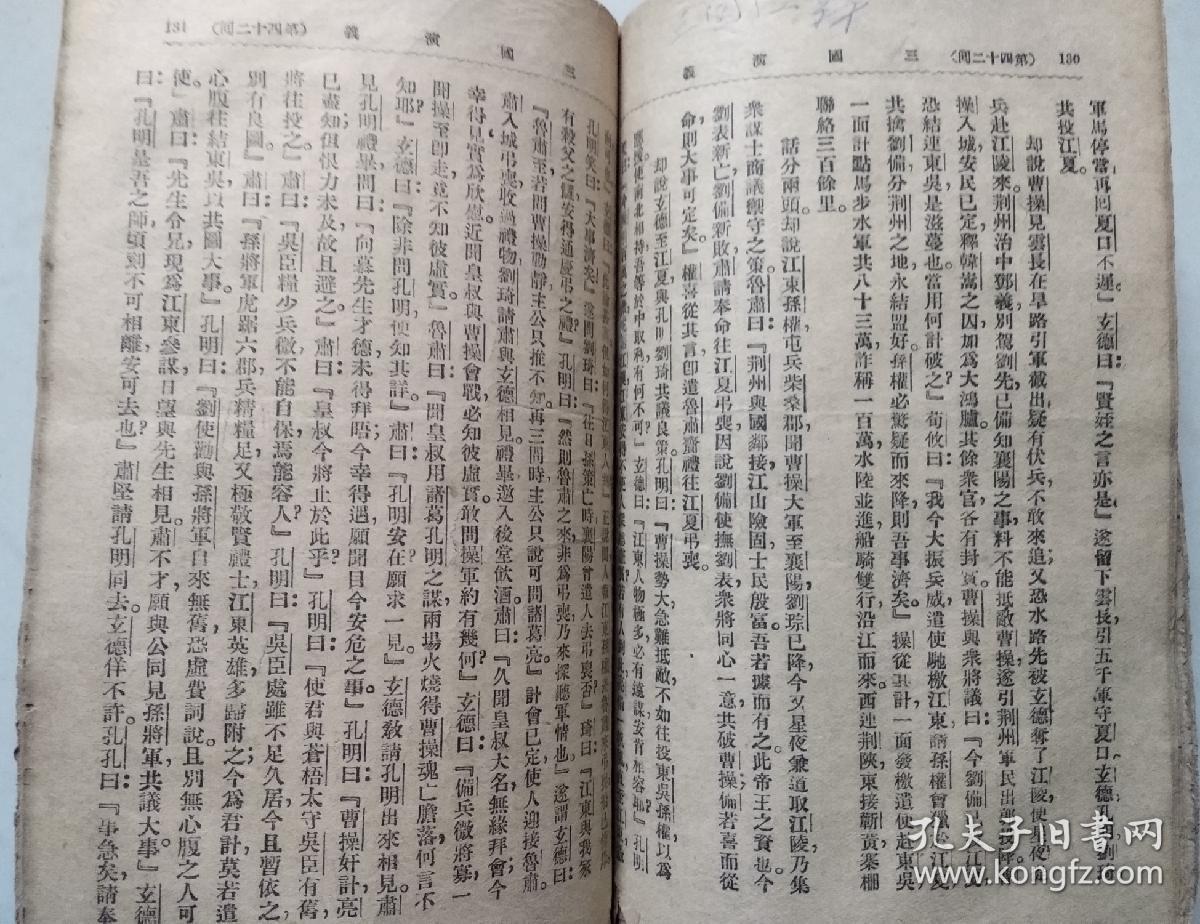 130 （第四十二回） 三國演義
軍馬停當，再回夏口不遲。』玄德曰：『賢姪之言亦是。』遂留下雲長，引五千軍守夏口。玄德、孔明、劉琦
共投江夏。
却說曹操見雲長在旱路引軍截出，疑有伏兵，不敢來追；又恐水路先被玄德奪了江陵，便星夜
兵赴江陵來。荊州治中鄧義，別駕劉先，已備知襄陽之事，料不能抵敵曹操，遂引荊州軍民出郭投降。曹
操入城，安民已定，釋韓嵩之囚，加爲大鴻臚。其餘衆官，各有封賞。曹操與衆將議曰：『今劉備已投江夏，
恐結連東吳，是滋蔓也。當用何計破之？』荀攸曰：『我今大振兵威，遣使馳檄江東，請孫權會獵於江夏，
共擒劉備，分荊州之地，永結盟好。孫權必驚疑而來降，則吾事濟矣。』操從其計，一面發檄遣使赴東吳；
一面計點馬步水軍共八十三萬，詐稱一百萬，水陸並進，船騎雙行，沿江而來，西連荊陝，東接蘄黃，寨柵
聯絡三百餘里。
話分兩頭：却說江東孫權，屯兵柴桑郡，聞曹操大軍至襄陽，劉琮已降，今又星夜兼道取江陵，乃集
衆謀士商議禦守之策。魯肅曰：『荊州與國鄰接，江山險固，士民殷富。吾若據而有之，此帝王之資也。今
劉表新亡，劉備新敗，肅請奉命往江夏弔喪，因說劉備使撫劉表衆將，同心一意，共破曹操；備若喜而從
命，則大事可定矣。』權喜從其言，即遣魯肅齎禮往江夏弔喪。
却說玄德至江夏，與孔明、劉琦共議良策。孔明曰：『曹操勢大，急難抵敵，不如往投東吳孫權，以爲
應援。使南北相持，吾等於中取利，有何不可？』玄德曰：『江東人物極多，必有遠謀，安肯相容耶？』孔明
三國演義 （第四十二回） 131
孔明笑曰：『大事濟矣！』遂問劉琦曰：『往日孫策亡時，襄陽曾遣人去弔喪否？』琦曰：『江東與我家
有殺父之讎，安得通慶弔之禮？』孔明曰：『然則魯肅之來，非爲弔喪，乃來探聽軍情也。』遂謂玄德曰：
『魯肅至，若問曹操動靜，主公只推不知。再三問時，主公只說可問諸葛亮。』計會已定，使人迎接魯肅。
肅入城弔喪；收過禮物，劉琦請肅與玄德相見。禮畢，邀入後堂飲酒。肅曰：『久聞皇叔大名，無緣拜會；今
幸得見，實爲欣慰。近聞皇叔與曹操會戰，必知彼虛實。敢問操軍約有幾何？』玄德曰：『備兵微將寡，一
聞操至即走，竟不知彼虛實。』魯肅曰：『聞皇叔用諸葛孔明之謀，兩場火燒得曹操魂亡膽落，何言不
知耶？』玄德曰：『除非問孔明，便知其詳。』肅曰：『孔明安在？願求一見。』玄德教請孔明出來相見。肅
見孔明禮畢，問曰：『向慕先生才德，未得拜晤；今幸得遇，願聞目今安危之事。』孔明曰：『曹操奸計，亮
已盡知；但恨力未及，故且避之。』肅曰：『皇叔今將止於此乎？』孔明曰：『使君與蒼梧太守吳臣有舊，
將往投之。』肅曰：『吳臣糧少兵微，不能自保，焉能容人？』孔明曰：『吳臣處雖不足久居，今且暫依之，
別有良圖。』肅曰：『孫將軍虎踞六郡，兵精糧足，又極敬賢禮士，江東英雄，多歸附之。今爲君計，莫若遣
心腹往結東吳，以共圖大事。』孔明曰：『劉使君與孫將軍自來無舊，恐虛費詞說，且別無心腹之人可
使。』肅曰：『先生令兄，現爲江東參謀，日望與先生相見。肅不才，願與公同見孫將軍，共議大事。』玄德
曰：『孔明是吾之師，頃刻不可相離，安可去也？』肅堅請孔明同去。玄德佯不許。孔孔曰：『事急矣，請奉
孔夫子旧书网
www.kongfz.com